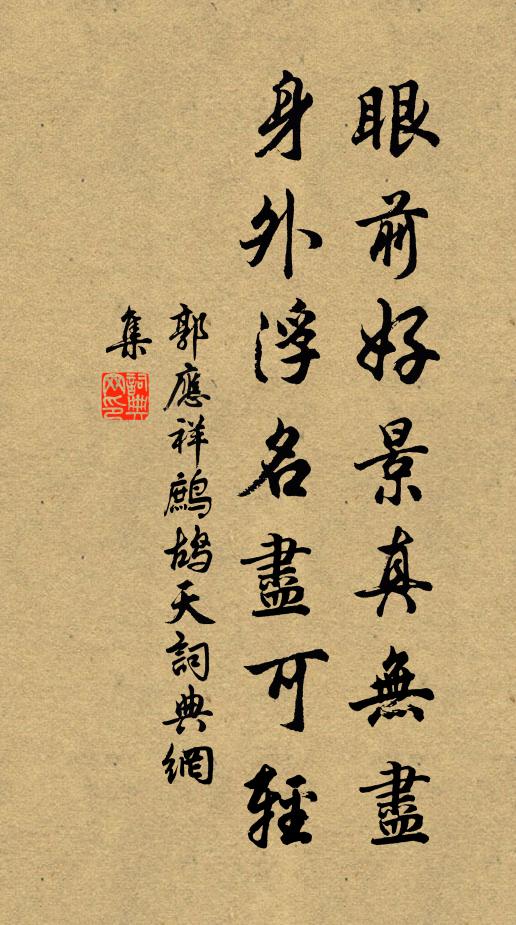 眼前好景真無盡
身外浮名盡可輕
郭應祥鷓鴣天詞典網
集
詞典
网印